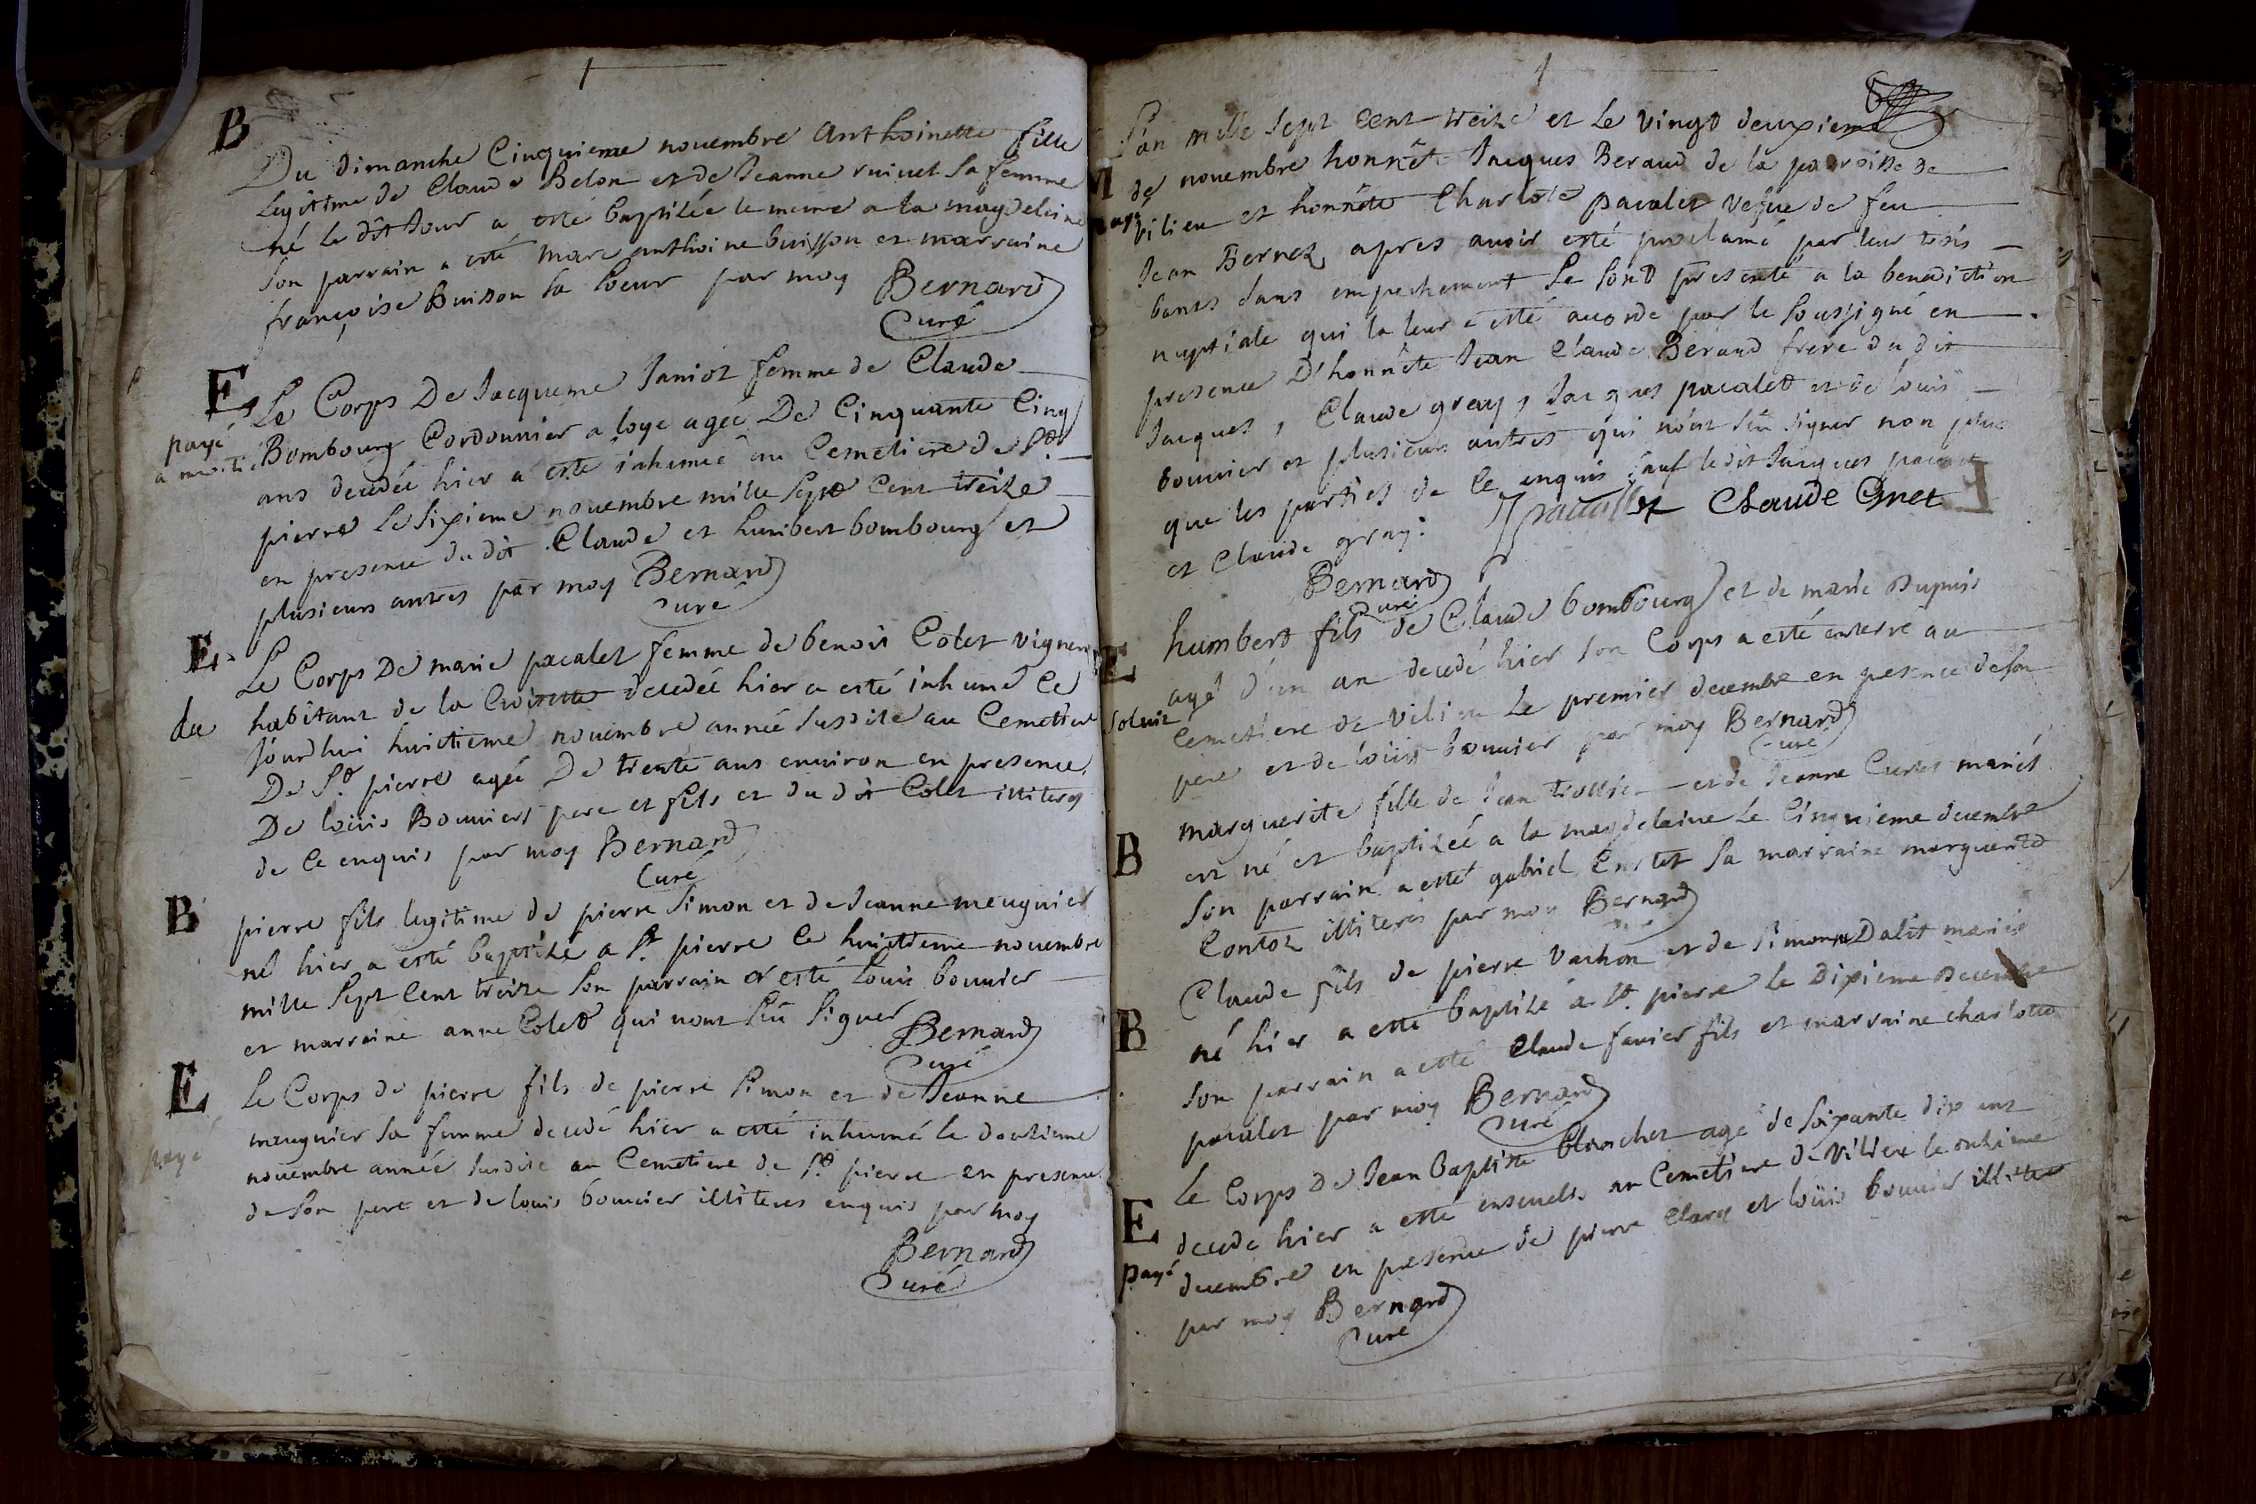 B
Du dimanche Cinquieme nouembre anthoinette fille
legitime de Claude Belon et de Jeanne ruiuet sa femme
né le dit Jour a esté baptisée le meme a la magdeleine
son parrain a esté marc anthoine buisson et marraine
françoise Buisson sa soeur par moy Bernard
Curé
E
payé
a moitie
Le Corps De Jacqueme Janiot femme de Claude
Bombourg Cordonnier a loye agée De Cinquante Cinq
ans decedée hier a esté inhumée au Cemetiere de St
pierre le sixieme nouembre mille sept Cent treize
en presence du dit Claude et humbert bombourg et
plusieurs autres par moy Bernard
Curé
E
du
Le Corps De marie pacalet femme de benoit Colet vigneron
habitant de la Croisette decedée hier a esté inhumé Ce
Jourdhui huictieme nouembre année susdite au Cemetiere
De St pierre agée De trente ans enuiron en presence
De louis Bouuiers pere et fils et du dit Colet illiteres
de Ce enquis par moy Bernard
Curé
B
pierre fils legitime de pierre Simon et de Jeanne meugnier
né hier a esté baptisé a St pierre Ce huictieme nouembre
mille sept Cent treize son parrain a esté Louis bouuier
et marraine anne Colet qui nont sçu signer Bernard
Curé
E
payé
Le Corps de pierre fils de pierre Simon et de Jeanne
meugnier sa femme decedé hier a esté inhumé le douzieme
nouembre année susdite au Cemetiere de St pierre en presence
de son pere et de louis bouuier illiteres enquis par moy
Bernard
Curé
6
L'an mille sept cent treize et le vingt deuxieme
M
de nouembre honnête Jacques Beraud de la paroisse de
vilieu et honnête Charlote pacalet vefue de feu
Jean Bernet apres auoir esté proclamé par leur trois
bants sans empechement se sont presenté a la benediction
nuptiale qui la leur a esté acordé par le soussigné en
presence D'honnête Jean Claude Beraud frere du dit
Jacques, Claude gray, Jacques pacalet et de louis
bouuier et plusieurs autres qui n'ont sçu signer non plus
que les parties de Ce enquis sauf le dit Jacques pacalet
et Claude gray. J pacallet Claude Gnet
Bernard
Curé
E
Soluit
humbert fils de Claude bombourg et de marie Dupuis
agé d'un an decedé hier son Corps a esté enterré au
Cemetiere de vilieu Le premier decembre en presence de son
pere et de louis bouuier par moy Bernard
Curé
B
marguerite fille de Jean trollier et de Jeanne Curtet mariés
est né et baptisée a la magdelaine Le Cinquieme decembre
son parrain a esté gabriel Curtet sa marraine marguerite
Contoz illiteres par moy Bernard
Curé
B
Claude fils de pierre vachon et de simonne Dalit mariés
né hier a esté baptisé a St pierre le Dixieme Decembre
son parrain a esté Claude fauier fils et marraine charlotte
pacalet par moy Bernard
Curé
E
payé
Le Corps De Jean baptiste blanchet agé de soixante dix ans
decedé hier a esté enseueli au Cemetiere de Vilieu le onzieme
decembre en presence de pierre Clary et loüis bouuier illiteres
par moy Bernard
Curé